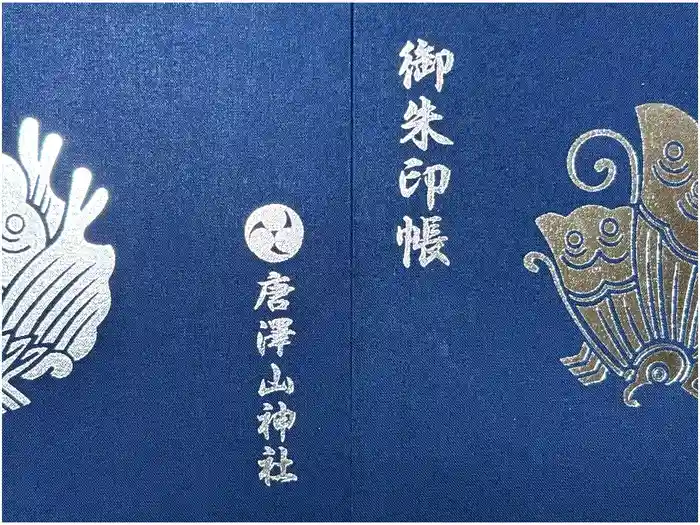 御朱印帳
唐澤山神社